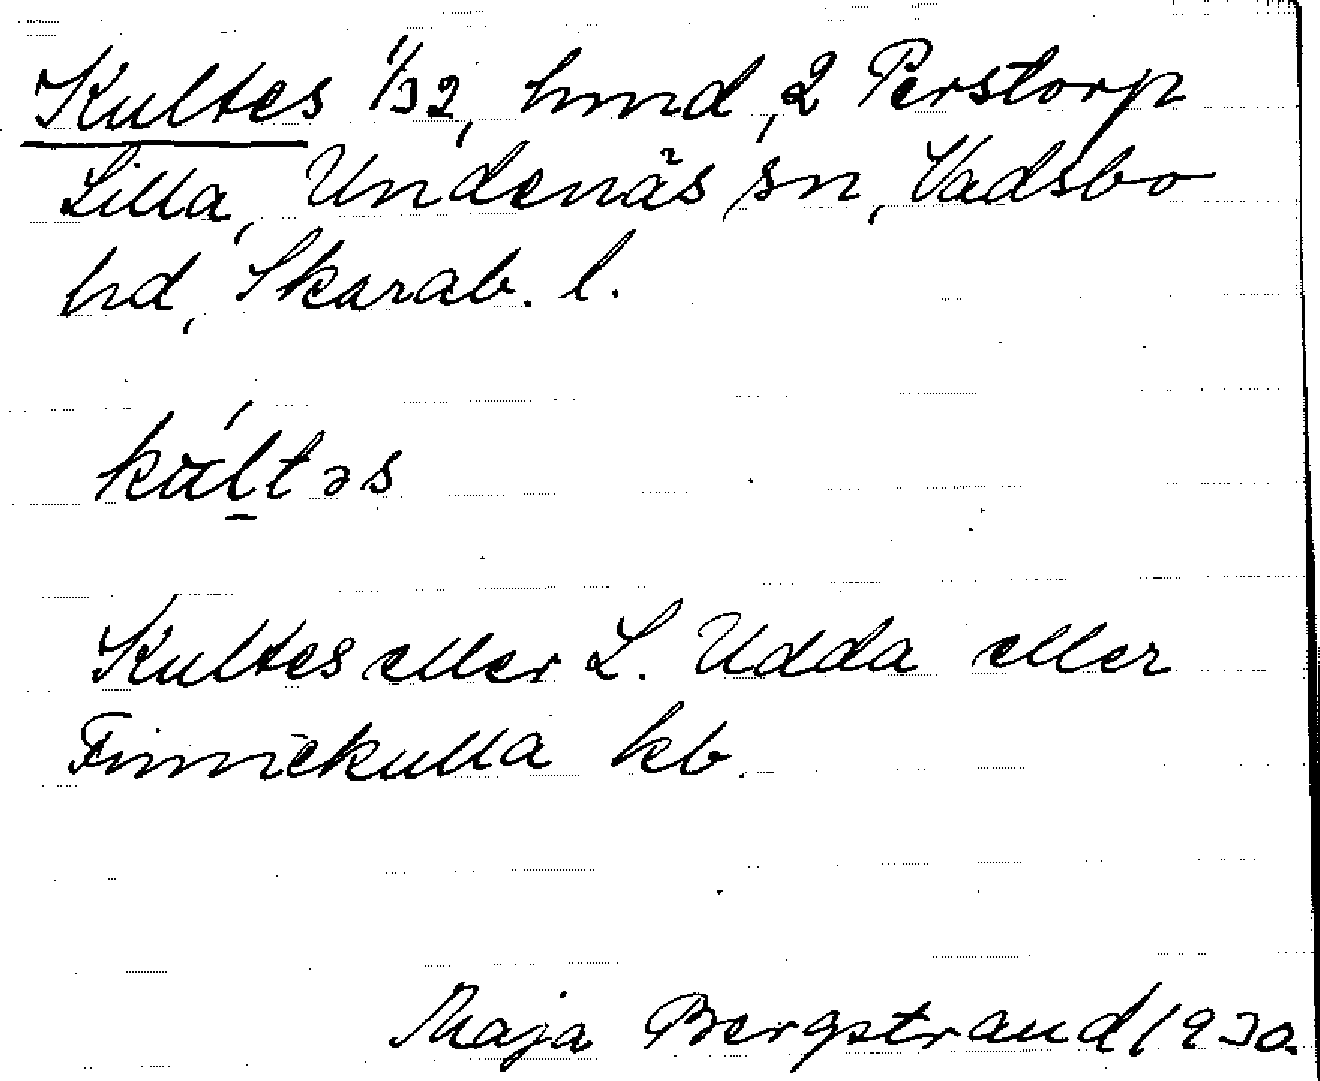 Kultes 1/32, hmd, 2 Perstorp
Lilla, Undenäs sn, Vadsbo
hd, Skarab. l.
Kultes eller L. Udda eller
Finnickulla kb.
Maja Bergstrand 1930.